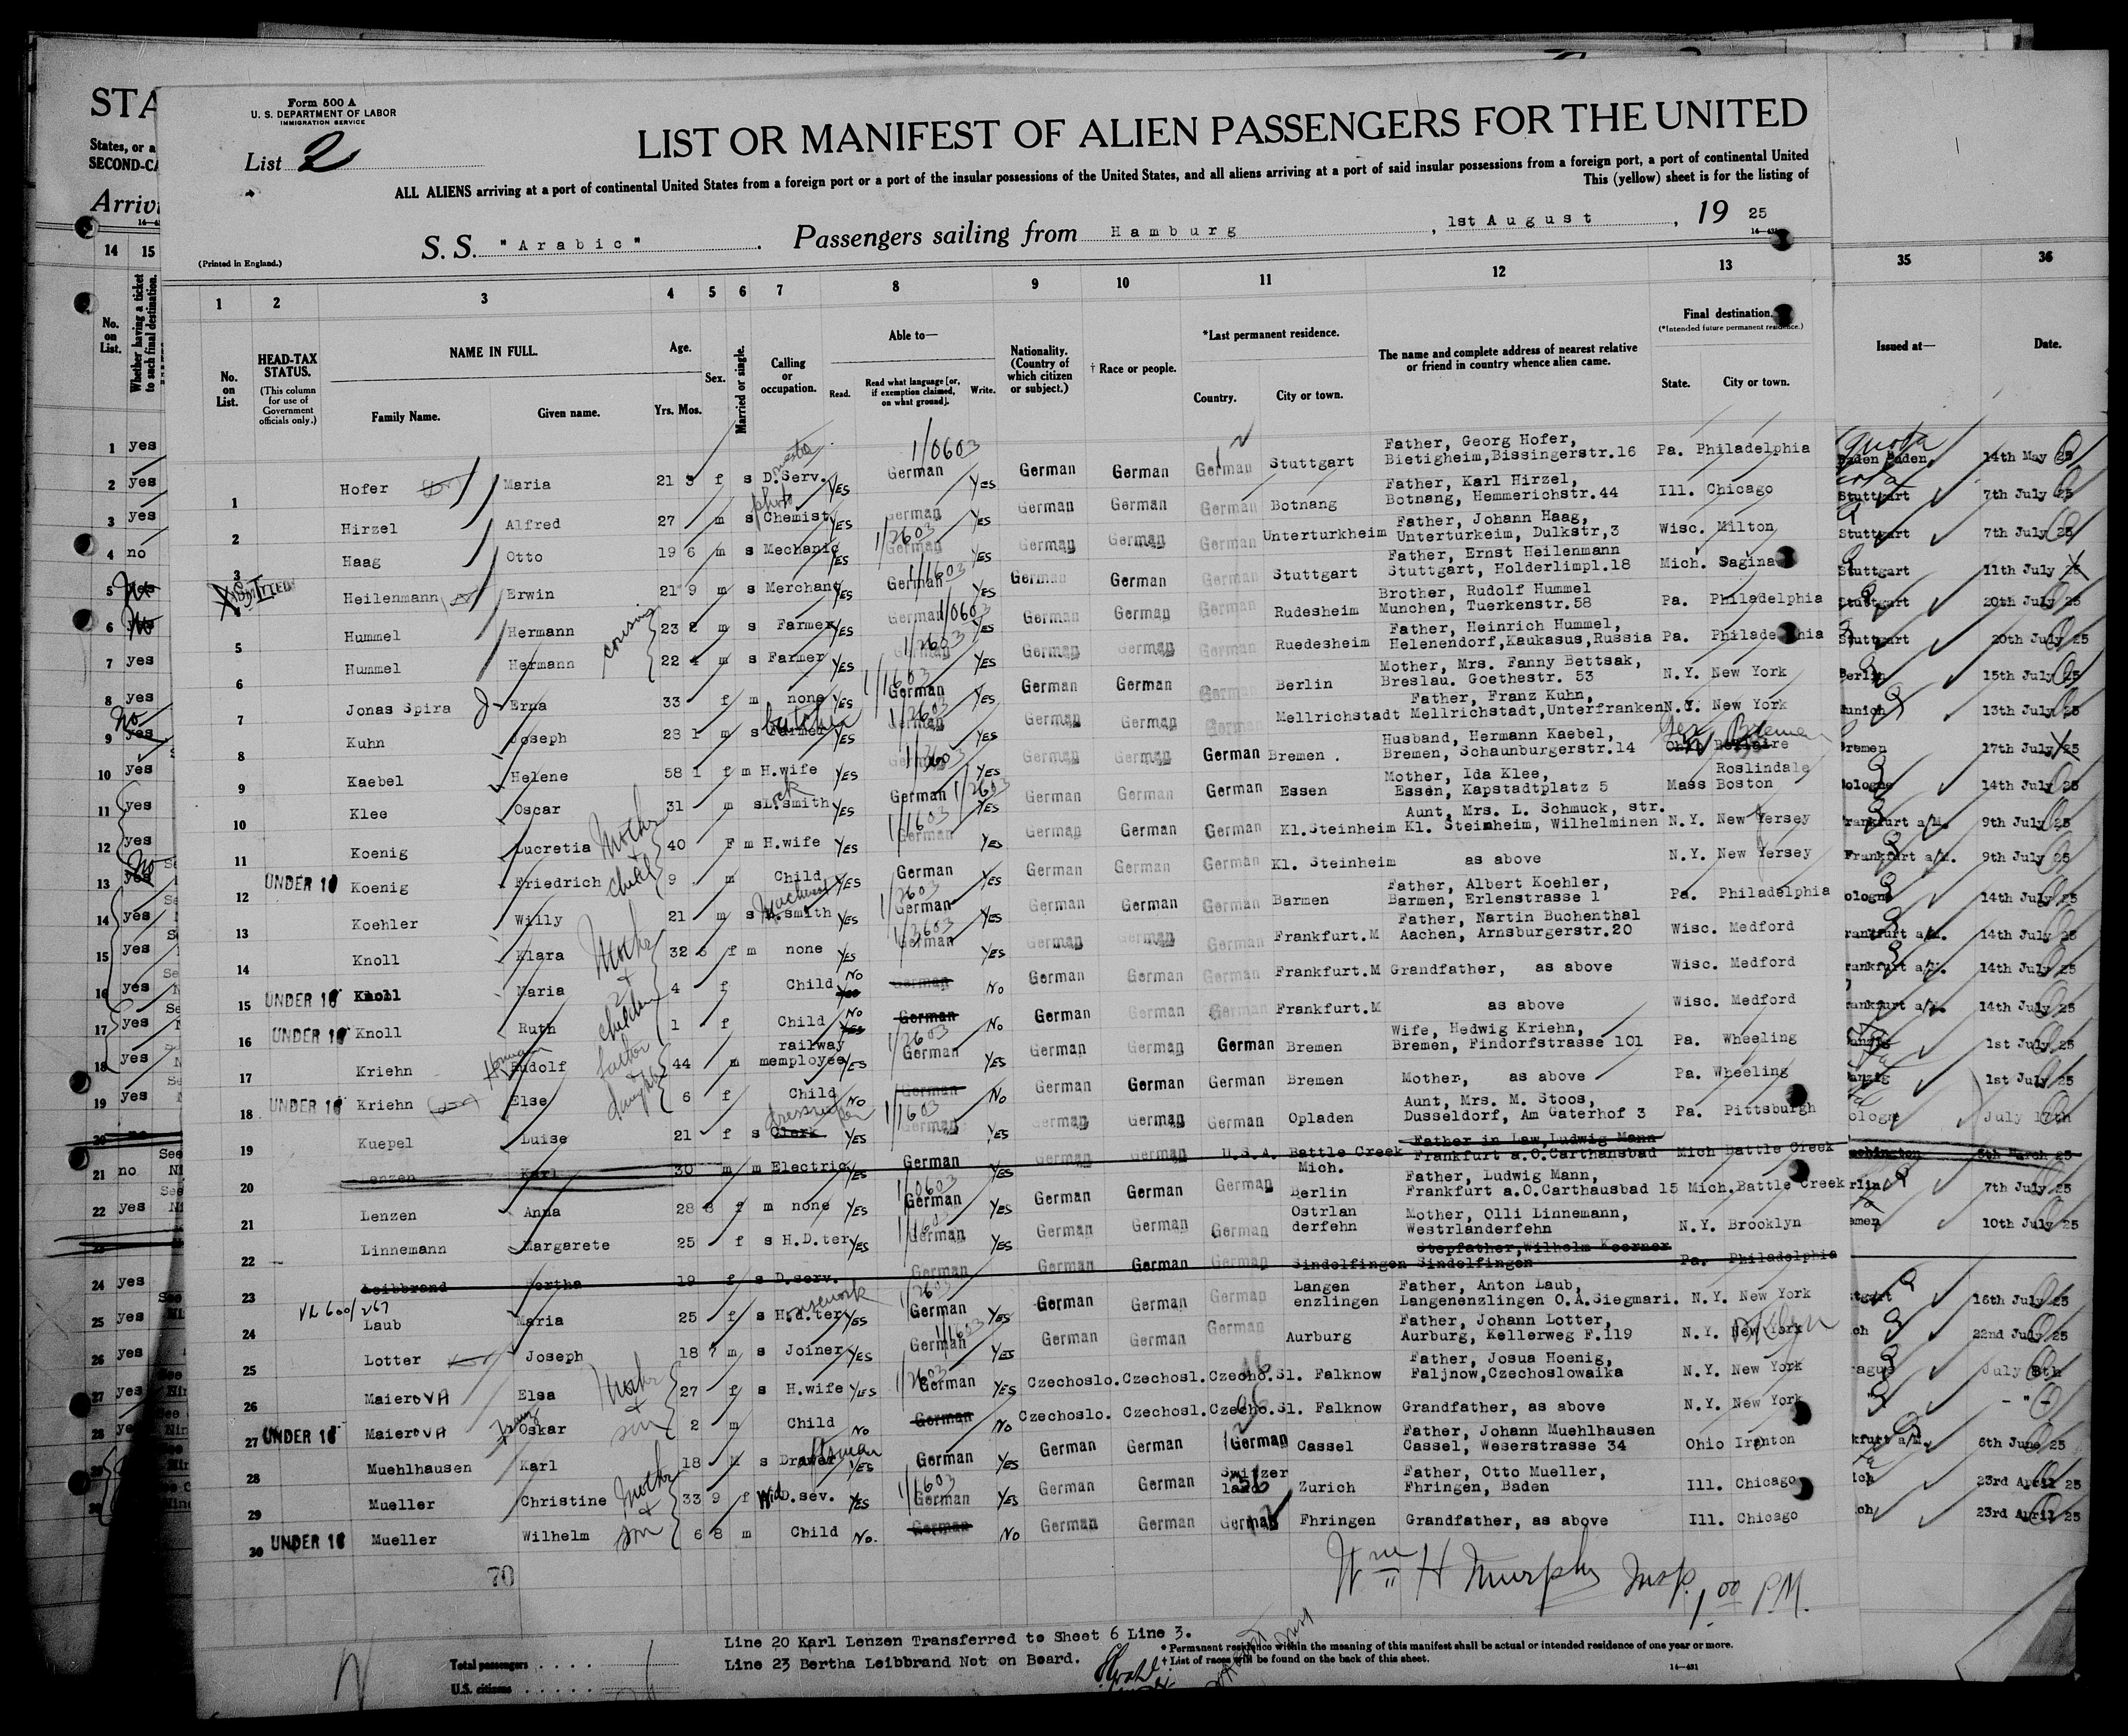 STA
States, or a
SECOND-CA
Arrivi
Form 500 A
U. S. DEPARTMENT OF LABOR
IMMIGRATION SERVICE
List 2
LIST OR MANIFEST OF ALIEN PASSENGERS FOR THE UNITED
ALL ALIENS arriving at a port of continental United States from a foreign port or a port of the insular possessions of the United States, and all aliens arriving at a port of said insular possessions from a foreign port, a port of continental United
This (yellow) sheet is for the listing of
S. S. "Arabic". Passengers sailing from Hamburg, 1st August, 19 25
(Printed in England.)
14 15 1 2 3 4 5 6 7 8 9 10 11 12 13 35 36
No. on List.
Whether having a ticket to such final destination.
No. on List.
HEAD-TAX STATUS.
(This column for use of Government officials only.)
NAME IN FULL.
Family Name. Given name.
Age.
Yrs. Mos.
Sex.
Married or single.
Calling or occupation.
Able to—
Read. Read what language [or, if exemption claimed, on what ground]. Write.
Nationality. (Country of which citizen or subject.)
† Race or people.
*Last permanent residence.
Country. City or town.
The name and complete address of nearest relative or friend in country whence alien came.
Final destination.
(*Intended future permanent residence.)
State. City or town.
Issued at— Date.
Father, Georg Hofer,
1 Hofer Maria 21 f s D.Serv. Yes German Yes German German German Stuttgart Bietigheim,Bissingerstr.16 Pa. Philadelphia Baden Baden 14th May 25
Father, Karl Hirzel,
2 Hirzel Alfred 27 m s Chemist Yes German Yes German German German Botnang Botnang, Hemmerichstr.44 Ill. Chicago Stuttgart 7th July 25
Father, Johann Haag,
3 Haag Otto 19 6 m s Mechanic Yes German Yes German German German Unterturkheim Unterturkeim, Dulkstr,3 Wisc. Milton Stuttgart 7th July 25
Father, Ernst Heilenmann
4 ADMITTED Heilenmann Erwin 21 9 m s Merchant Yes German Yes German German German Stuttgart Stuttgart, Holderlimpl.18 Mich. Sagina Stuttgart 11th July 25
Brother, Rudolf Hummel
5 Hummel Hermann cousins 23 2 m s Farmer Yes German Yes German German German Rudesheim Munchen, Tuerkenstr.58 Pa. Philadelphia Stuttgart 20th July 25
Father, Heinrich Hummel,
6 Hummel Hermann 22 4 m s Farmer Yes German Yes German German German Ruedesheim Helenendorf,Kaukasus,Russia Pa. Philadelphia Stuttgart 20th July 25
Mother, Mrs. Fanny Bettsak,
7 Jonas Spira Erna 33 f m none Yes German Yes German German German Berlin Breslau. Goethestr. 53 N.Y. New York Berlin 15th July 25
Father, Franz Kuhn,
8 Kuhn Joseph 28 1 m s Farmer butcher Yes German Yes German German German Mellrichstadt Mellrichstadt,Unterfranken N.Y. New York Munich 13th July 25
Husband, Hermann Kaebel,
9 Kaebel Helene 58 1 f m H.wife Yes German Yes German German German Bremen . Bremen, Schaunburgerstr.14 Ger Bremen Bremen 17th July 25
Mother, Ida Klee, Roslindale
10 Klee Oscar 31 m s L.smith Yes German Yes German German German Essen Essen, Kapstadtplatz 5 Mass Boston Cologne 14th July 25
Aunt, Mrs. L. Schmuck, str.
11 Koenig Lucretia Mother & child 40 F m H.wife Yes German Yes German German German Kl.Steinheim Kl. Steinheim, Wilhelminen N.Y. New Yersey Frankfurt a/M. 9th July 25
12 UNDER 16 Koenig Friedrich 9 m Child Yes German Yes German German German Kl. Steinheim as above N.Y. New Yersey Frankfurt a/M. 9th July 25
Father, Albert Koehler,
13 Koehler Willy 21 m s smith Yes German Yes German German German Barmen Barmen, Erlenstrasse 1 Pa. Philadelphia Cologne 14th July 25
Father, Nartin Buchenthal
14 Knoll Klara Mother & children 32 6 f m none Yes German Yes German German German Frankfurt.M Aachen, Arnsburgerstr.20 Wisc. Medford Frankfurt a/M. 14th July 25
15 UNDER 16 Knoll Maria 4 f Child No German No German German German Frankfurt.M Grandfather, as above Wisc. Medford Frankfurt a/M. 14th July 25
16 UNDER 16 Knoll Ruth 1 f Child No German No German German German Frankfurt.M as above Wisc. Medford Frankfurt a/M. 14th July 25
railway Wife, Hedwig Kriehn,
17 Kriehn Herman Rudolf father & daughter 44 m m employee Yes German Yes German German German Bremen Bremen, Findorfstrasse 101 Pa. Wheeling Danzig 1st July 25
18 UNDER 16 Kriehn Else 6 f Child No German No German German German Bremen Mother, as above Pa. Wheeling Danzig 1st July 25
Aunt, Mrs. M. Stoos,
19 Kuepel Luise 21 f s Clerk Yes German Yes German German German Opladen Dusseldorf, Am Gaterhof 3 Pa. Pittsburgh Cologne July 17th
Father in Law,Ludwig Mann
20 Lenzen Karl 30 m m Electric Yes German Yes German German U.S.A. Battle Creek Mich. Frankfurt a.O.Carthansbad Mich Battle Creek Washington 5th March 25
Father, Ludwig Mann,
21 Lenzen Anna 28 8 f m none Yes German Yes German German German Berlin Frankfurt a.O.Carthausbad 15 Mich.Battle Creek Berlin 7th July 25
Ostrlan Mother, Olli Linnemann,
22 Linnemann Margarete 25 f s H.D.ter Yes German Yes German German German derfehn Westrlanderfehn N.Y. Brooklyn Bremen 10th July 25
Stepfather,Wilhelm Koerner
23 Leibbrand Bertha 19 f s D.serv. German German German German Sindelfingen Sindelfingen Pa. Philadelphia
VL 600/267
Langen Father, Anton Laub,
24 Laub Maria 25 f s H.d.ter Yes German Yes German German German enzlingen Langenenzlingen O.A.Siegmari. N.Y. New York Stuttgart 16th July 25
Father, Johann Lotter,
25 Lotter Joseph 18 7 m s Joiner Yes German Yes German German German Aurburg Aurburg, Kellerweg F.119 N.Y. New York Bklyn 22nd July 25
Father, Josua Hoenig,
26 MaierOVA Elsa Mother & son 27 f s H.wife Yes German Yes Czechoslo. Czechosl. Czecho.Sl. Falknow Faljnow,Czechoslowaika N.Y. New York Prague July 8th
27 UNDER 16 MaierOVA Franz Oskar 2 m Child No German No Czechoslo. Czechosl. Czecho.Sl. Falknow Grandfather, as above N.Y. New York - " -
Father, Johann Muehlhausen
28 Muehlhausen Karl 18 M s Drawer Yes German Yes German German German Cassel Cassel, Weserstrasse 34 Ohio Ironton Frankfurt a/M. 6th June 25
Switzer Father, Otto Mueller,
29 Mueller Christine Mother & son 33 9 f Wid D.sev. Yes German Yes German German land Zurich Fhringen, Baden Ill. Chicago 23rd April 25
30 UNDER 16 Mueller Wilhelm 6 8 m Child No. German No German German German Fhringen Grandfather, as above Ill. Chicago 23rd April 25
70
Wm H Murphy Insp. 1.00 P.M.
Line 20 Karl Lenzen Transferred to Sheet 6 Line 3.
Line 23 Bertha Leibbrand Not on Board.
Total passengers
U.S. citizens
* Permanent residence within the meaning of this manifest shall be actual or intended residence of one year or more.
† List of races will be found on the back of this sheet.
14—481